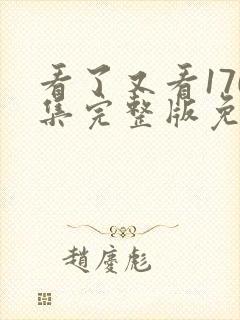 看了又看170
集完整版免
趙慶彪